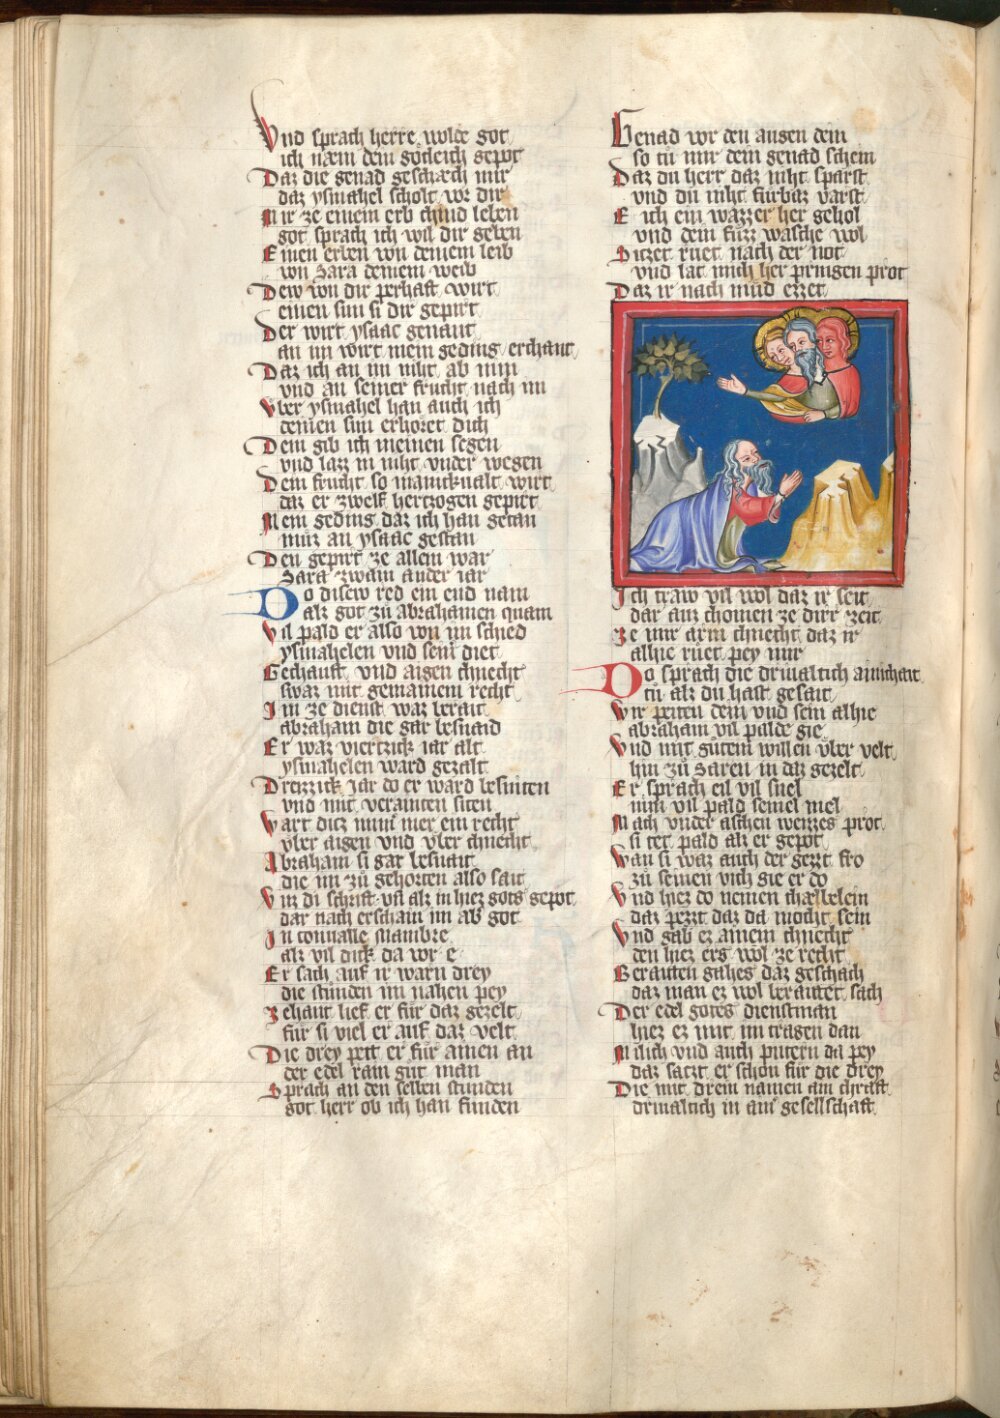 Vnd sprach herre wolde got
ich næm dein gödleich gepot
Daz die genad geschæch mir
daz ysmahel scholt vor dir
Mir ze einem erb chind leben
got sprach ich wil dir geben
Einen erben von deinem leib
von Sara deinem weib
Dew von dir perhaft wirt
einen sun si dir gepirt
Der wirt ysaac genant
an im wirt mein geding erchant
Daz ich an im niht ab nim
vnd an seiner frucht nach im
Vber ysmahel han auch ich
deinen sun erhöret dich
Dem gib ich meinen segen
vnd lazz in niht vnder wegen
Dem frucht so manickualt wirt
daz er zwelf hertzogen gepirt
Mein geding daz ich han getan
muz an ysaac gestan
Den gepirt ze allem war
Sara zwain ander iar
Do disew red ein end nam
alz got zů Abrahamen quam
Vil pald er also von im schied
ysmahelen vnd sein diet
Gechauft vnd aigen chnecht
swaz mit gemainem recht
Im ze dienst waz berait
abraham die gar besnaid
Er waz viertzick iar alt
ysmahelen ward gezalt
Dreizzick Jar do er ward besniten
vnd mit verainten siten
Wart ditz nimmer ein recht
vber aigen vnd vber chnecht
Abraham si gar besnait
die im zů gehorten also sait
Vns di schrift vñ alz in hiez gots gepot
dar nach erschain im ab got
In conualle Mambre
alz vil dick da vor e
Er sach auf ir warn drey
die stůnden im nahen pey
Zehant lief er für daz gezelt
für si viel er auf daz velt
Die drey pett er für ainen an
der edel rain gut man
Sprach an den selben stunden
got herr ob ich han funden
Genad vor den augen dein
so tů mir dein genad schein
Daz du herr daz niht sparst
vnd du niht fürbaz varst
E ich ein wazzer her gehol
vnd dein füzz wasche wol
Sitzet ruet nach der not
vnd lat mich her pringen prot
Daz ir nach müd ezzet
Ich traw vil wol daz ir seit
dar auz chomen ze dirr zeit
Ze mir arm chnecht daz ir
alhie ruet pey mir
Do sprach die driualtich ainichait
tů alz du hast gesait
Wir peiten dein vnd sein alhie
abraham vil palde gie
Vnd mit gůtem willen vber velt
hin zů Saren in daz gezelt
Er sprach eil vil snel
nim vil pald semel mel
Mach vnder aschen weizzes prot
si tet pald alz er gepot
Wan si waz auch der gezt fro
zů seinen vich gie er do
Vnd hiez do nemen chælbelein
daz pezzt daz da mocht sein
Vnd gab ez ainem chnecht
den hiez erz wol ze recht
Beraiten gahes daz geschach
daz man ez wol beraitet sach
Der edel gotes dienstman
hiez ez mit im tragen dan
Milich vnd auch putern da pey
daz satzt er schon für die drey
Die mit drein namen ain chraft
driualtich in ain gesellschaft